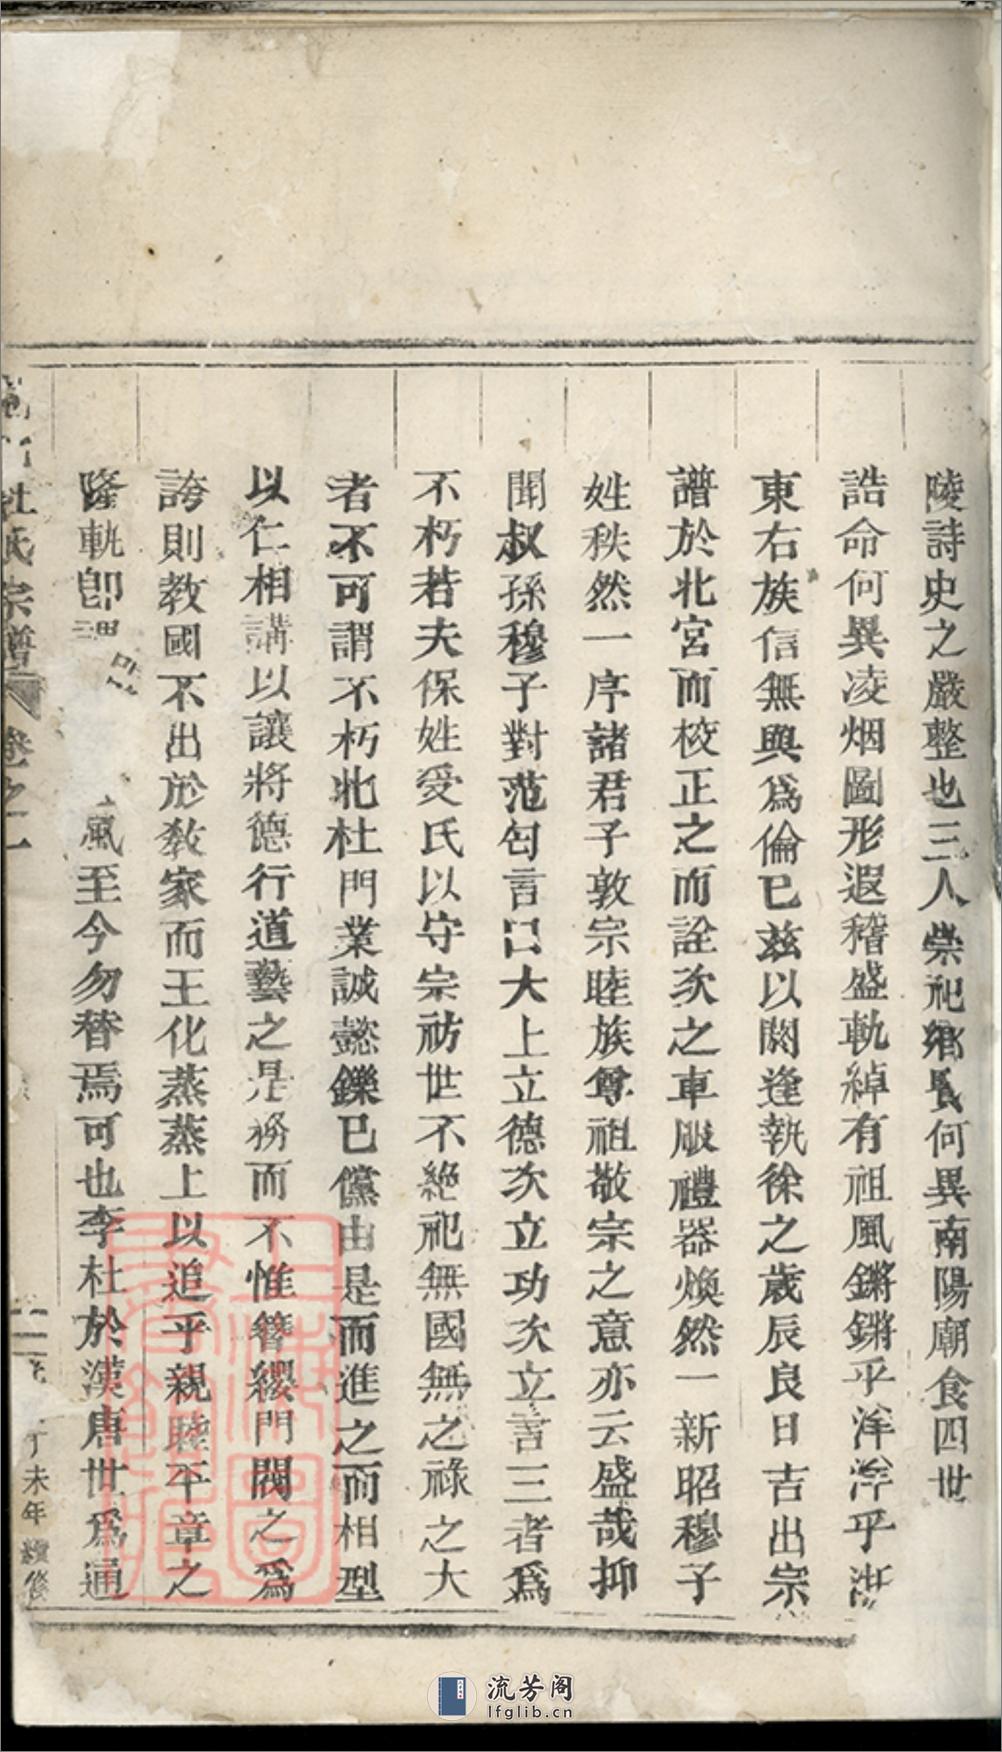 陵詩史之嚴整也三人崇祀鄉賢何異南陽廟食四世
誥命何異凌烟圖形遐稽盛軌綽有祖風鏘鏘乎洋洋乎浙
東右族信無與為倫已玆以閼逢執徐之歲辰良日吉出宗
譜於北宮而校正之而詮次之車服禮器煥然一新昭穆子
姓秩然一序諸君子敦宗睦族尊祖敬宗之意亦云盛哉抑
聞叔孫穆子對范匄言曰大上立德次立功次立言三者為
不朽若夫保姓受氏以守宗祊世不絕祀無國無之祿之大
者不可謂不朽北杜門業誠懿鑠已儻由是而進之而相型
以仁相講以讓將德行道藝之是務而不惟簪纓門閥之為
誇則教國不出於教家而王化蒸蒸上以追乎親睦平章之
隆軌卽 風至今勿替焉可也李杜於漢唐世為通
杜氏宗譜 卷之一
丁未年續修
上海圖書館藏
流芳阁
lfglib.cn